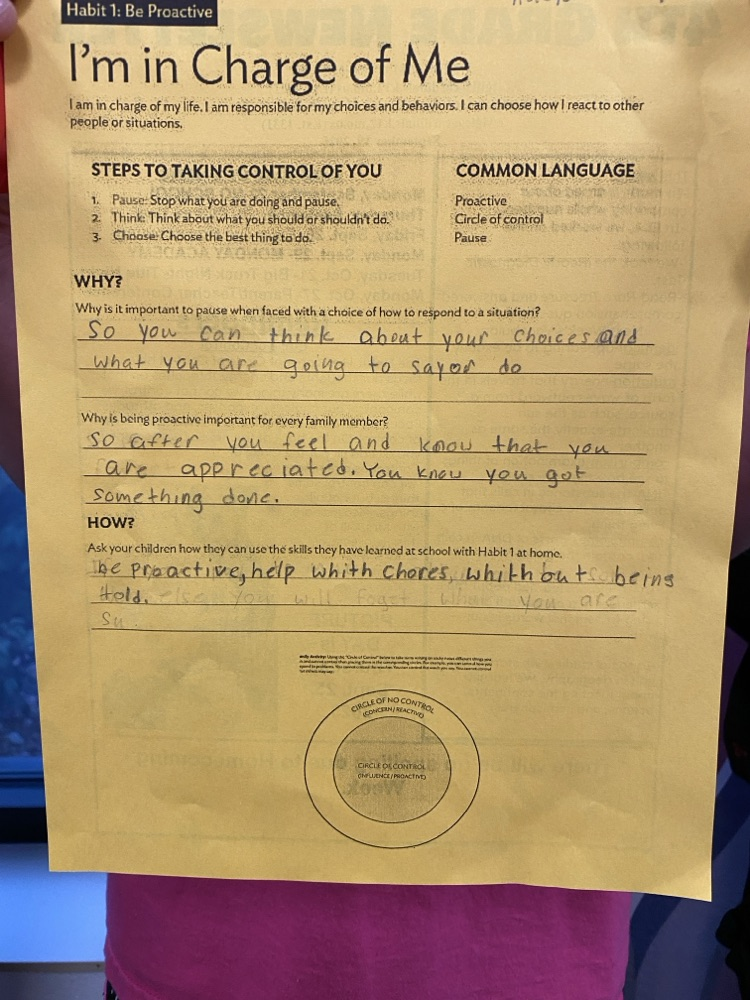 Habit 1: Be Proactive
I'm in Charge of Me
I am in charge of my life. I am responsible for my choices and behaviors. I can choose how I react to other
people or situations.
STEPS TO TAKING CONTROL OF YOU
1. Pause: Stop what you are doing and pause.
2. Think: Think about what you should or shouldn't do.
3. Choose: Choose the best thing to do.
COMMON LANGUAGE
Proactive
Circle of control
Pause
WHY?
Why is it important to pause when faced with a choice of how to respond to a situation?
So you can think about your choices and
what you are going to say or do
Why is being proactive important for every family member?
so after you feel and know that you
are appreciated. You know you got
something done.
HOW?
Ask your children how they can use the skills they have learned at school with Habit 1 at home.
be proactive, help whith chores, whith out being
told. else you will foget what you are
Su
CIRCLE OF NO CONTROL
(CONCERN/REACTIVE)
CIRCLE OF CONTROL
(INFLUENCE/PROACTIVE)